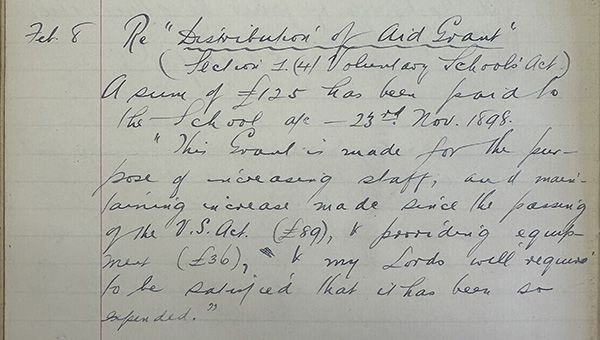 Feb. 8 Re "Distribution of Aid Grant"
(Section 1.(4) Voluntary Schools Act.)
A sum of £125 has been paid to
the School a/c - 23rd Nov. 1898.
"This Grant is made for the pur-
pose of increasing staff, and main-
taining increase made since the passing
of the V.S. Act. (£89), & providing equip-
ment (£36), & my Lords will require
to be satisfied that it has been so
expended."